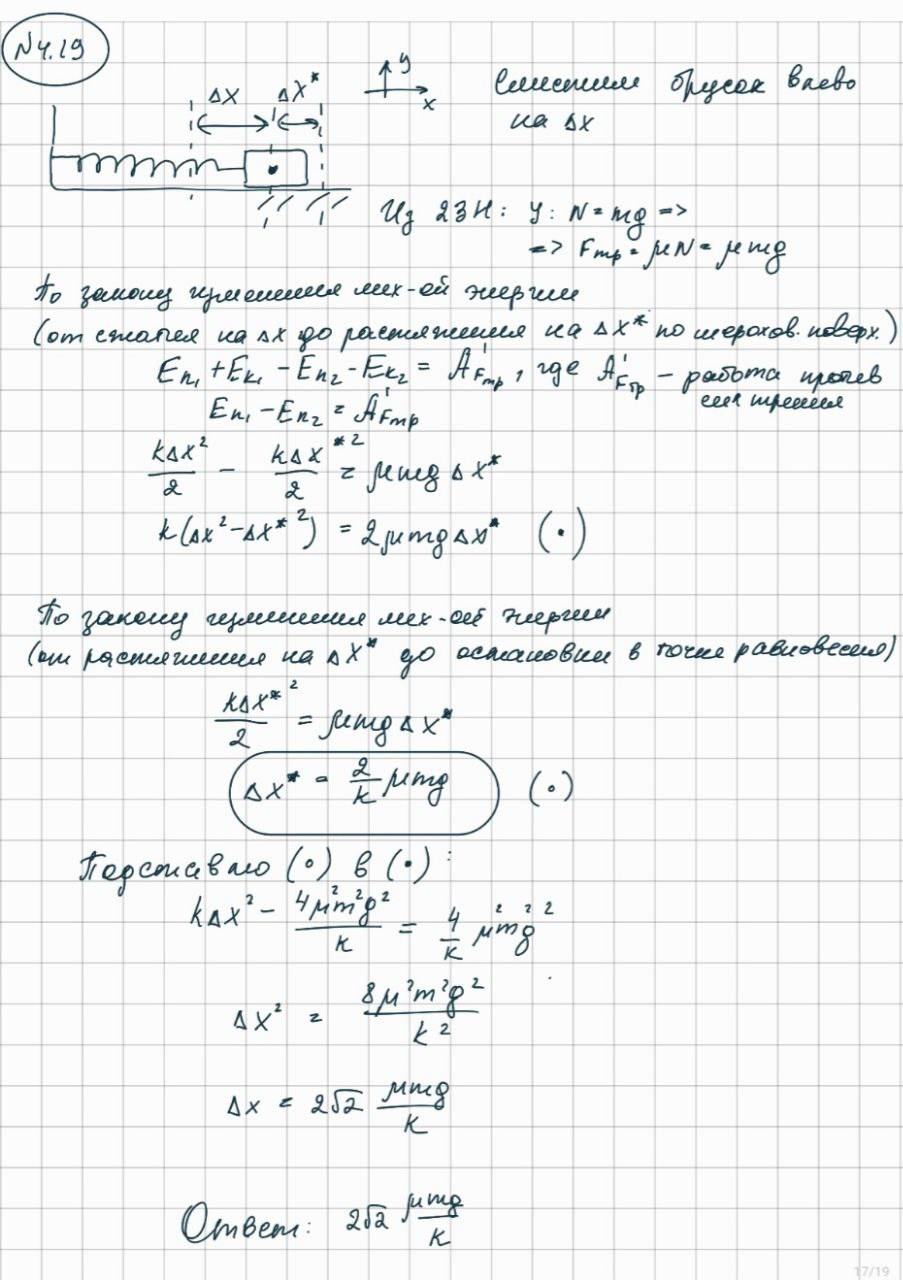 N4.19
Δx Δx*
y
x
Сместим брусок влево
на Δx
Из 2ЗН: y: N = mg =>
=> Fтр = μN = μmg
По закону изменения мех-ой энергии
(от сжатия на Δx до растяжения на Δx* по шерохов. поверх.)
Eп₁ + Eк₁ - Eп₂ - Eк₂ = A'Fтр, где A'Fтр - работа против
сил трения
Eп₁ - Eп₂ = A'Fтр
kΔx²/2 - kΔx*²/2 = μmgΔx*
k(Δx² - Δx*²) = 2μmgΔx* (•)
По закону изменения мех-ой энергии
(от растяжения на Δx* до остановки в точке равновесия)
kΔx*²/2 = μmgΔx*
Δx* = 2/k μmg (∘)
Подставлю (∘) в (•):
kΔx² - 4μ²m²g²/k = 4/k μ²m²g²
Δx² = 8μ²m²g²/k²
Δx = 2√2 μmg/k
Ответ: 2√2 μmg/k
17/19